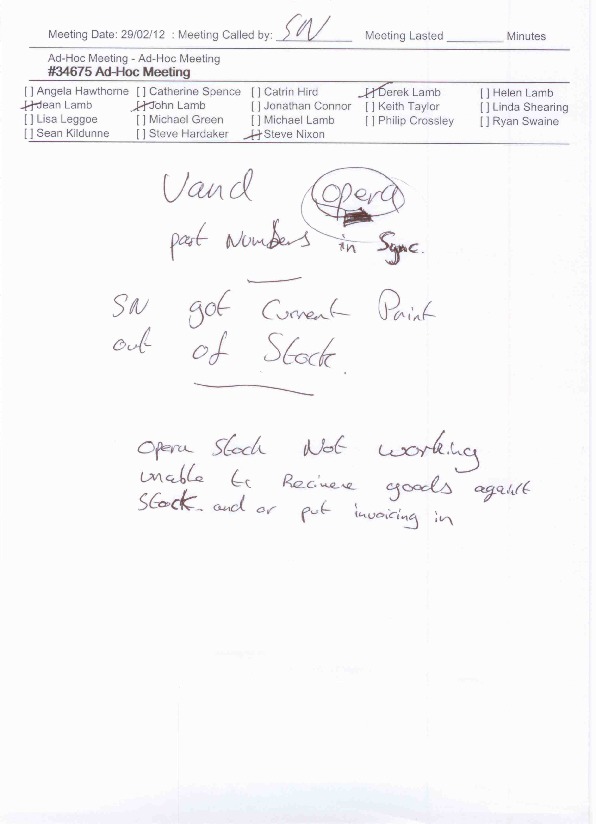 Meeting Date: 29/02/12 : Meeting Called by: SN Meeting Lasted ________ Minutes
Ad-Hoc Meeting - Ad-Hoc Meeting
#34675 Ad-Hoc Meeting
[ ] Angela Hawthorne [ ] Catherine Spence [ ] Catrin Hird [ ] Derek Lamb [ ] Helen Lamb
[ ] Jean Lamb [ ] John Lamb [ ] Jonathan Connor [ ] Keith Taylor [ ] Linda Shearing
[ ] Lisa Leggoe [ ] Michael Green [ ] Michael Lamb [ ] Philip Crossley [ ] Ryan Swaine
[ ] Sean Kildunne [ ] Steve Hardaker [ ] Steve Nixon
Vand opera
part Numbers in Sync.
SN got Current Paint
out of Stock.
Opera Stock Not working
unable to Recieve goods against
Stock and or put invoicing in